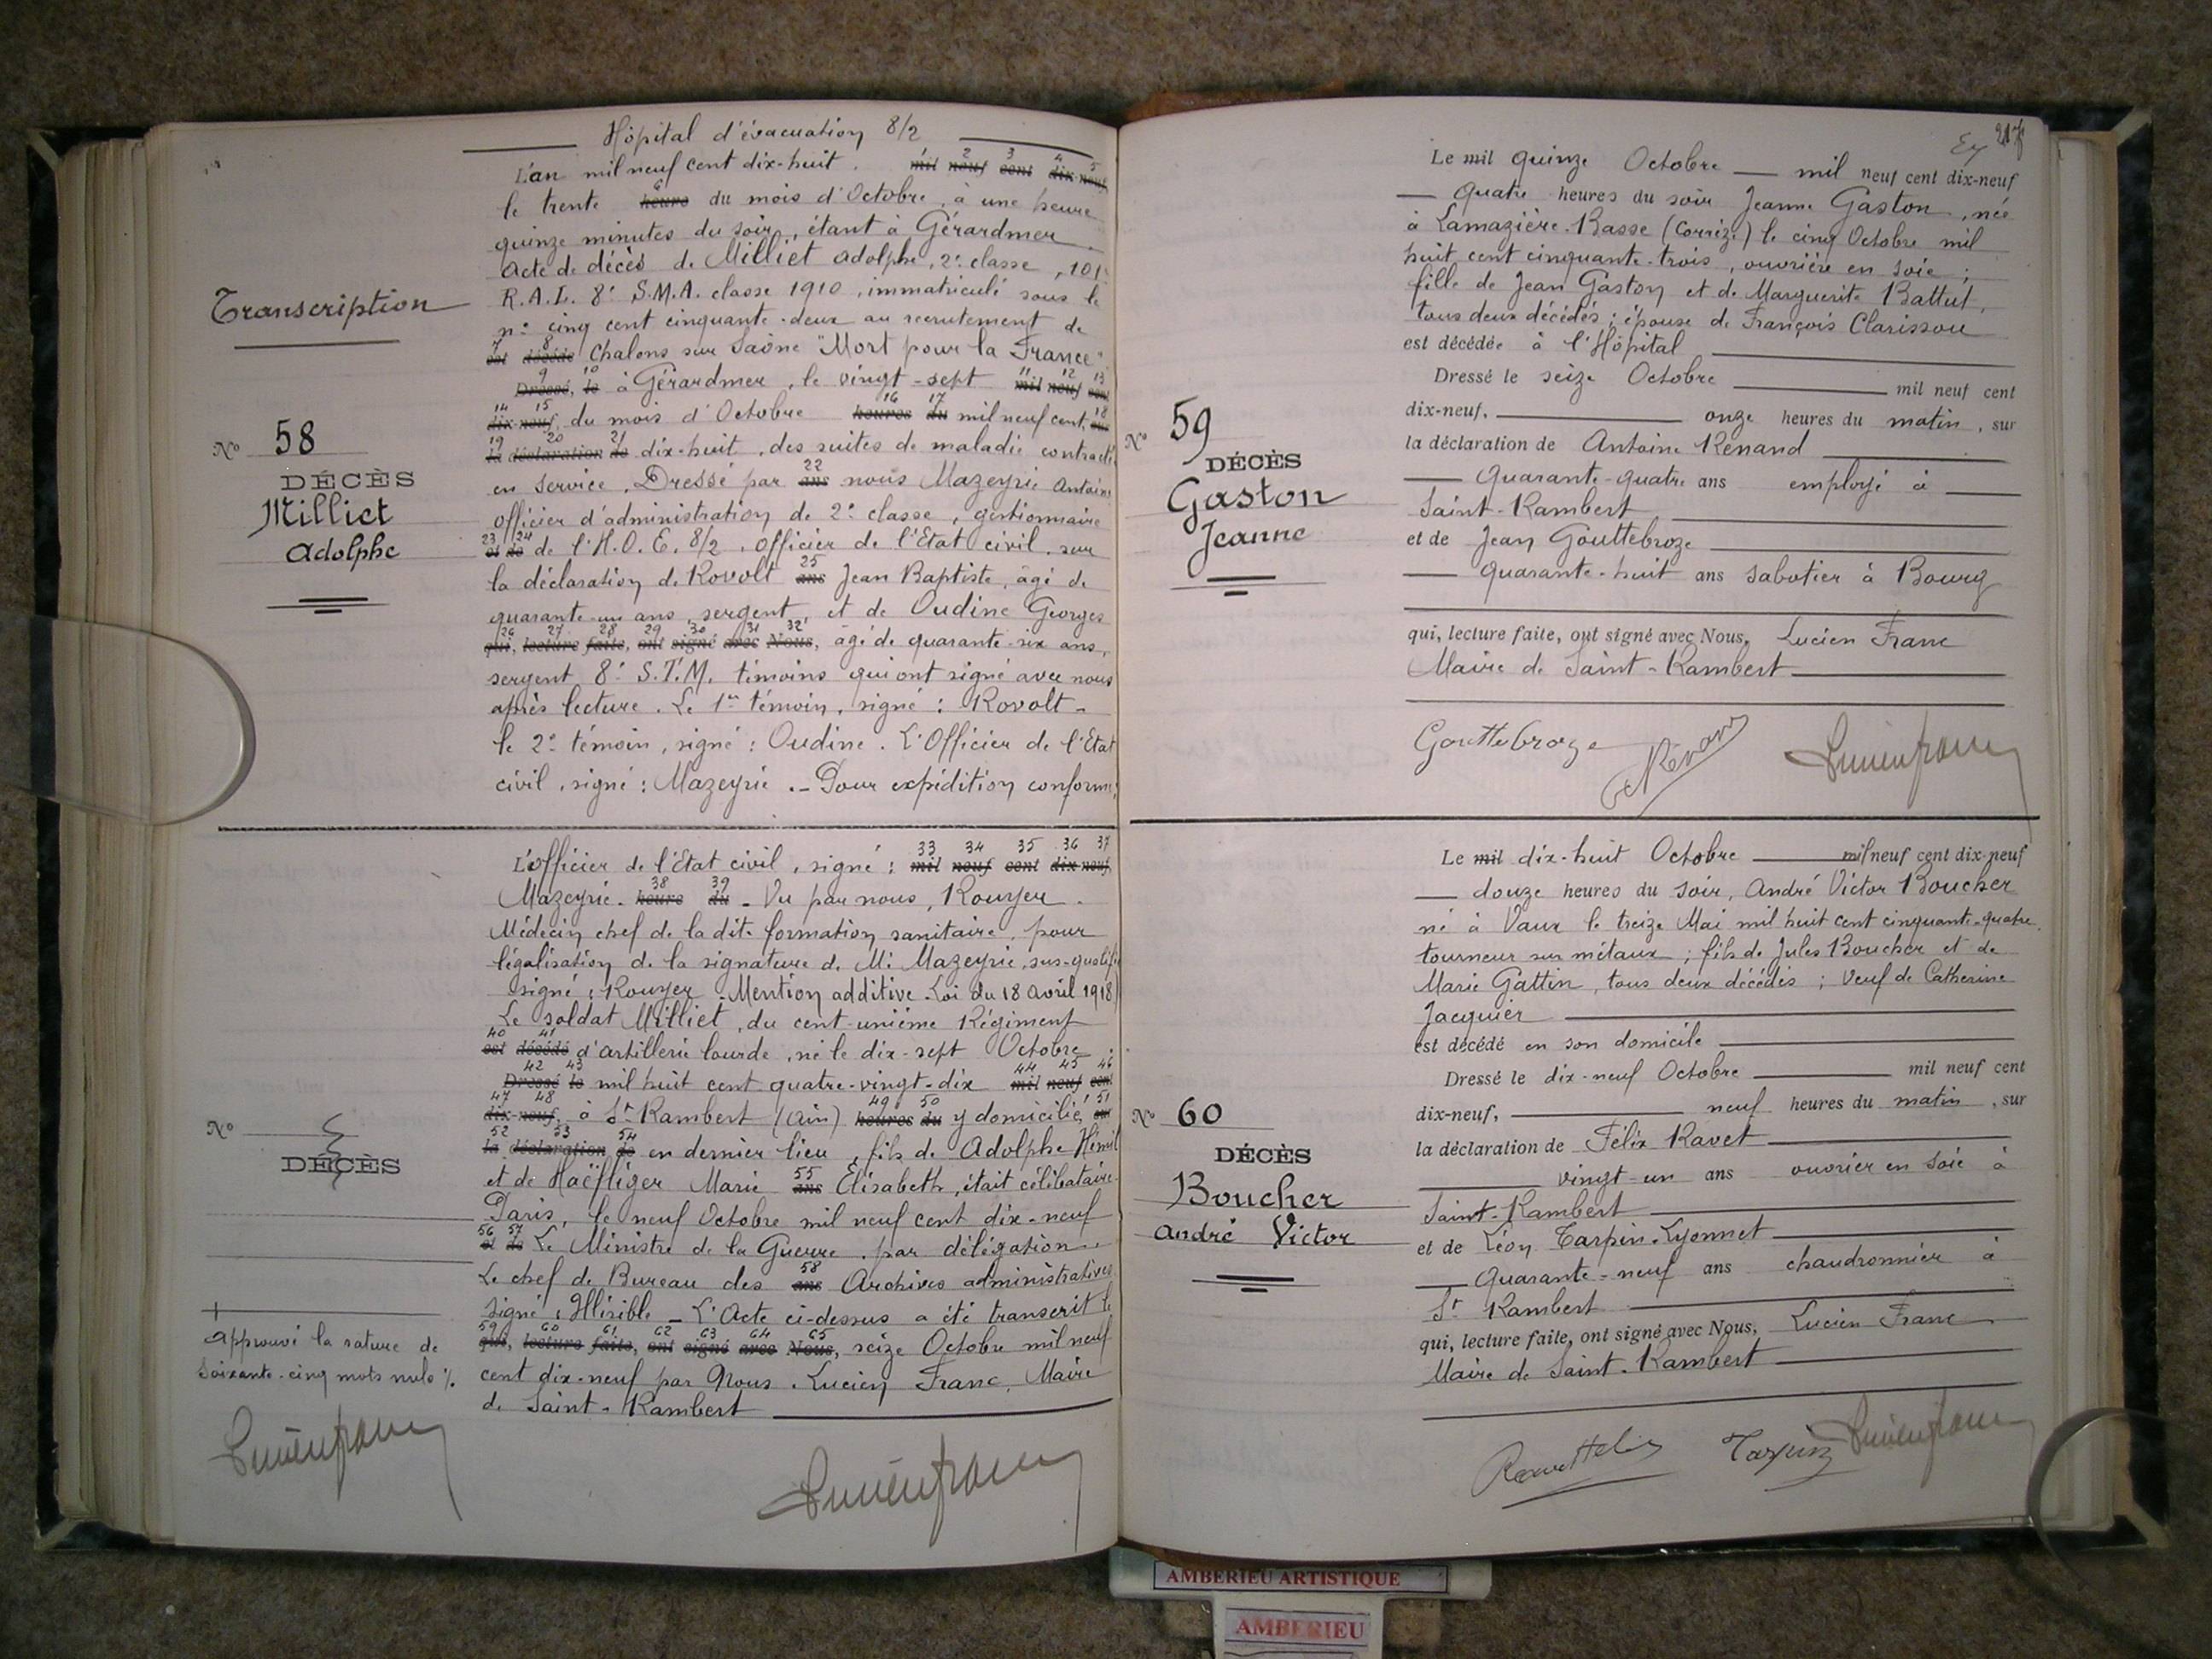 Hôpital d'évacuation 8/2
L'an mil neuf cent dix-huit. mil neuf cent dix-neuf
1 2 3 4 5
le trente heure du mois d'Octobre, à une heure
6
quinze minutes du soir, étant à Gérardmer.
Acte de décès de Milliet Adolphe, 2e classe, 101e
R.A.L. 8e S.M.A. classe 1910, immatriculé sous le
n° cinq cent cinquante-deux au recrutement de
7 8
est décédé Chalons sur Saône "Mort pour la France"
9 10 11 12 13
Dressé, le à Gérardmer, le vingt-sept mil neuf cent
14 15 16 17 18
dix-neuf, du mois d'Octobre heures du mil neuf cent, sur
19 20 21
la déclaration de dix-huit, des suites de maladie contractée
22
en service. Dressé par ans nous Mazeyrie Antoine
officier d'administration de 2e classe, gestionnaire
23 24
et de de l'H.O.E. 8/2, officier de l'Etat civil, sur
25
la déclaration de Rovolt ans Jean Baptiste, âgé de
quarante-un ans, sergent, et de Oudine Georges
26 27 28 29 30 31 32
qui, lecture faite, ont signé avec Nous, âgé de quarante-six ans,
sergent 8e S.T.M. témoins qui ont signé avec nous
après lecture. Le 1er témoin, signé : Rovolt -
le 2e témoin, signé : Oudine. L'Officier de l'Etat
civil, signé : Mazeyrie. - Pour expédition conforme,
Transcription
N° 58
DÉCÈS
Milliet
Adolphe
33 34 35 36 37
L'officier de l'Etat civil, signé : mil neuf cent dix-neuf,
38 39
Mazeyrie. heure du - Vu par nous, Rouyer.
Médecin chef de la dite formation sanitaire, pour
légalisation de la signature de M. Mazeyrie, sus-qualifié
signé : Rouyer. Mention additive. Loi du 18 avril 1918)
Le soldat Milliet, du cent-unième Régiment
40 41
est décédé d'artillerie lourde, né le dix-sept Octobre
42 43 44 45 46
Dressé le mil huit cent quatre-vingt-dix mil neuf cent
47 48 49 50 51
dix-neuf, à St Rambert (Ain) heures du y domicilié, sur
52 53 54
la déclaration de en dernier lieu, fils de Adolphe
55
et de Haëfliger Marie ans Elisabeth, était célibataire.
Paris, le neuf Octobre mil neuf cent dix-neuf
56 57
et de Le Ministre de la Guerre, par délégation.
58
Le chef de Bureau des ans Archives administratives
signé : Illisible - L'Acte ci-dessus a été transcrit le
59 60 61 62 63 64 65
qui, lecture faite, ont signé avec Nous, seize Octobre mil neuf
cent dix-neuf par Nous. Lucien Franc, Maire
de Saint-Rambert
N°
DÉCÈS
Approuvé la rature de
soixante-cinq mots nuls
Lucien Franc
Lucien Franc
217
Le mil quinze Octobre mil neuf cent dix-neuf
quatre heures du soir Jeanne Gaston, née
à Lamazière-Basse (Corrèze) le cinq Octobre mil
huit cent cinquante-trois, ouvrière en soie ;
fille de Jean Gaston et de Marguerite Battut,
tous deux décédés ; épouse de François Clarissou
est décédée à l'Hôpital
Dressé le seize Octobre mil neuf cent
dix-neuf, onze heures du matin, sur
la déclaration de Antoine Renand
quarante-quatre ans employé à
Saint-Rambert
et de Jean Gouttebroze
quarante-huit ans sabotier à Bourg
qui, lecture faite, ont signé avec Nous, Lucien Franc
Maire de Saint-Rambert
Gouttebroze Renand Lucien Franc
N° 59
DÉCÈS
Gaston
Jeanne
Le mil dix-huit Octobre mil neuf cent dix-neuf
douze heures du soir, André Victor Boucher
né à Vaux le treize Mai mil huit cent cinquante-quatre,
tourneur sur métaux ; fils de Jules Boucher et de
Marie Gattin, tous deux décédés ; veuf de Catherine
Jacquier
est décédé en son domicile
Dressé le dix-neuf Octobre mil neuf cent
dix-neuf, neuf heures du matin, sur
la déclaration de Félix Ravet
vingt-un ans ouvrier en soie à
Saint-Rambert
et de Léon Tarpin-Lyonnet
quarante-neuf ans chaudronnier à
St Rambert
qui, lecture faite, ont signé avec Nous, Lucien Franc
Maire de Saint-Rambert
N° 60
DÉCÈS
Boucher
André Victor
Ravet Félix Tarpin Lucien Franc
AMBERIEU ARTISTIQUE
AMBERIEU